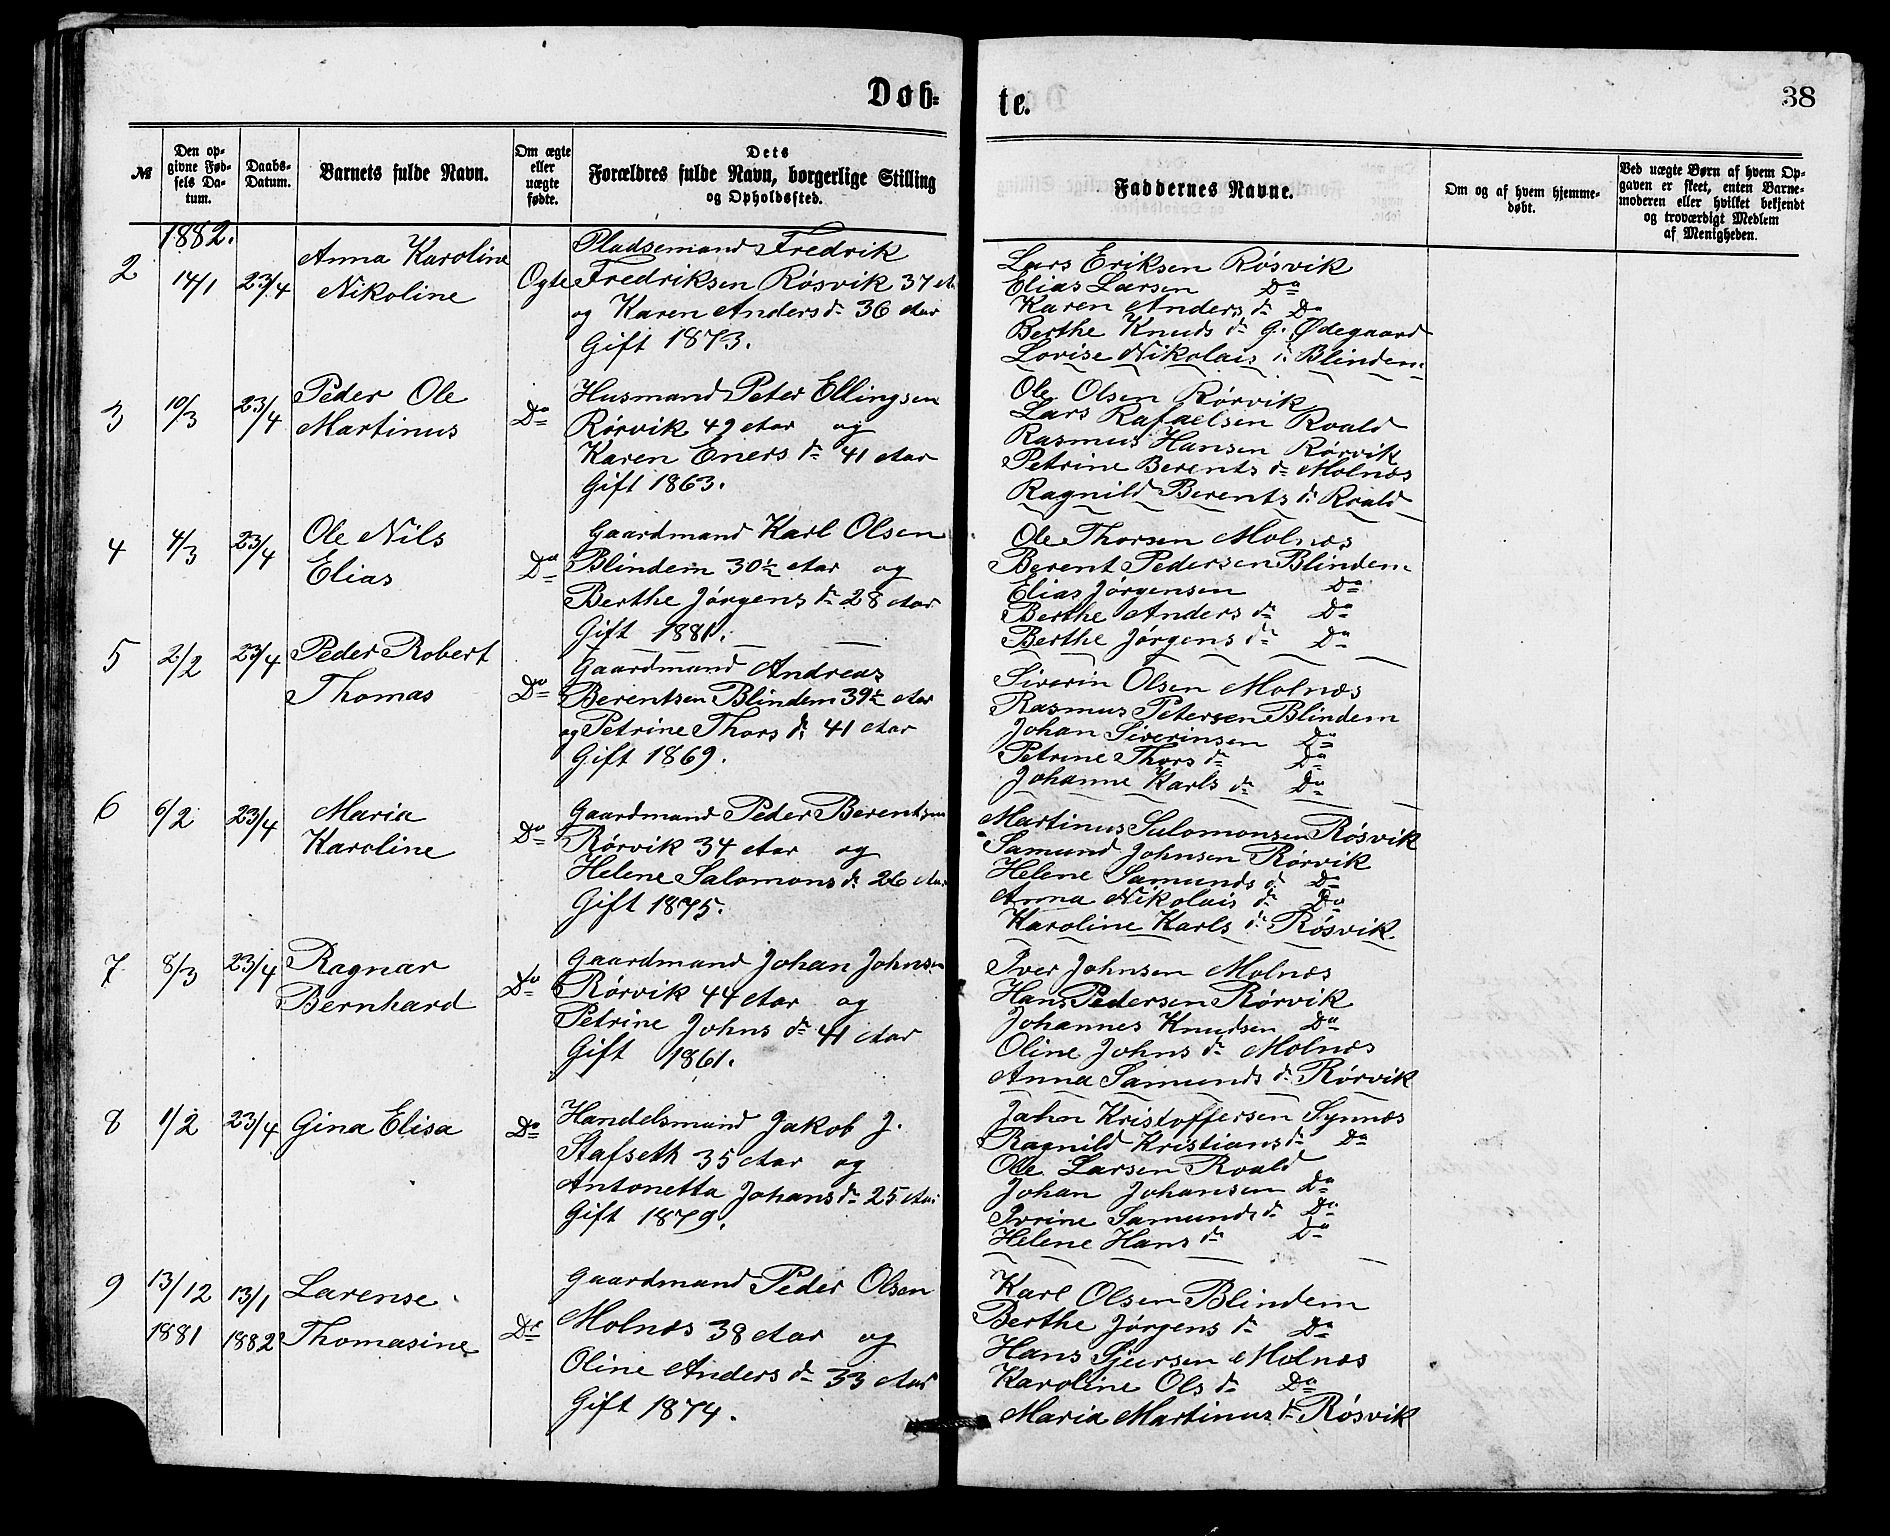 Døb-
te.
38
№
Den op-
givne Fød-
sels Da-
tum.
Daabs-
Datum.
Barnets fulde Navn.
Om ægte
eller
uægte
fødte.
Dets
Forældres fulde Navn, borgerlige Stilling
og Opholdssted.
Faddernes Navne.
Om og af hvem hjemme-
døbt.
Ved uægte Børn af hvem Op-
gaven er skeet, enten Barne-
moderen eller hvilket bekjendt
og troværdigt Medlem
af Menigheden.
1882.
2 14/1 23/4 Anna Karoline
Nikoline
Ogte
Pladsemand Fredrik
Fredriksen Røsvik 37 A.
og Karen Anders d. 36 Aar
Gift 1873.
Lars Eriksen Røsvik
Elias Larsen Do
Karen Anders d. Do
Berthe Knuds d. G. Ødegaard
Lovise Nikolais d. Blindem
3 10/3 23/4 Peder Ole
Martinus
Do
Husmand Peter Ellingsen
Rørvik 49 Aar og
Karen Eners d. 41 Aar
Gift 1863.
Ole Olsen Rørvik
Lars Rafaelsen Roald
Rasmus Hansen Rørvik
Petrine Berents d. Molnæs
Ragnild Berents d. Roald
4 4/3 23/4 Ole Nils
Elias
Do
Gaardmand Karl Olsen
Blindem 30½ Aar og
Berthe Jørgens d. 28 Aar
Gift 1881.
Ole Thorsen Molnæs
Berent Pedersen Blindem
Elias Jørgensen Do
Berthe Anders d. Do
Berthe Jørgens d. Do
5 2/2 23/4 Peder Robert
Thomas
Do
Gaardmand Andreas
Berentsen Blindem 39½ Aar
og Petrine Thors d. 41 Aar
Gift 1869.
Siverin Olsen Molnæs
Rasmus Petersen Blindem
Johan Siverinsen Do
Petrine Thors d. Do
Johanne Karls d. Do
6 6/2 23/4 Maria
Karoline
Do
Gaardmand Peder Berentsen
Rørvik 34 Aar og
Helene Salomons d. 26 Aar
Gift 1875.
Martinus Salomonsen Røsvik
Samund Johnsen Rørvik
Helene Samunds d. Do
Anna Nikolais d. Do
Karoline Karls d. Røsvik.
7 8/3 23/4 Ragnar
Bernhard
Do
Gaardmand Johan Johnsen
Rørvik 44 Aar og
Petrine Johns d. 41 Aar
Gift 1861.
Iver Johnsen Molnæs
Hans Pedersen Rørvik
Johannes Knudsen Do
Oline Johns d. Molnæs
Anna Samunds d. Rørvik
8 1/2 23/4 Gina Elisa
Do
Handelsmand Jakob J.
Stafseth 35 Aar og
Antonetta Johans d. 25 Aar
Gift 1879.
Jahn Kristoffersen Synnæs
Ragnild Kristians d. Do
Ole Larsen Roald
Johan Johansen Do
Ivrine Samunds d. Do
Helene Hans d. Do
9 13/12 1881 13/1 1882 Larense
Thomasine
Do
Gaardmand Peder Olsen
Molnæs 38 Aar og
Oline Anders d. 33 Aar
Gift 1874.
Karl Olsen Blindem
Berthe Jørgens d. Do
Hans Sjursen Molnæs
Karoline Ols d. Do
Maria Martinus d. Røsvik